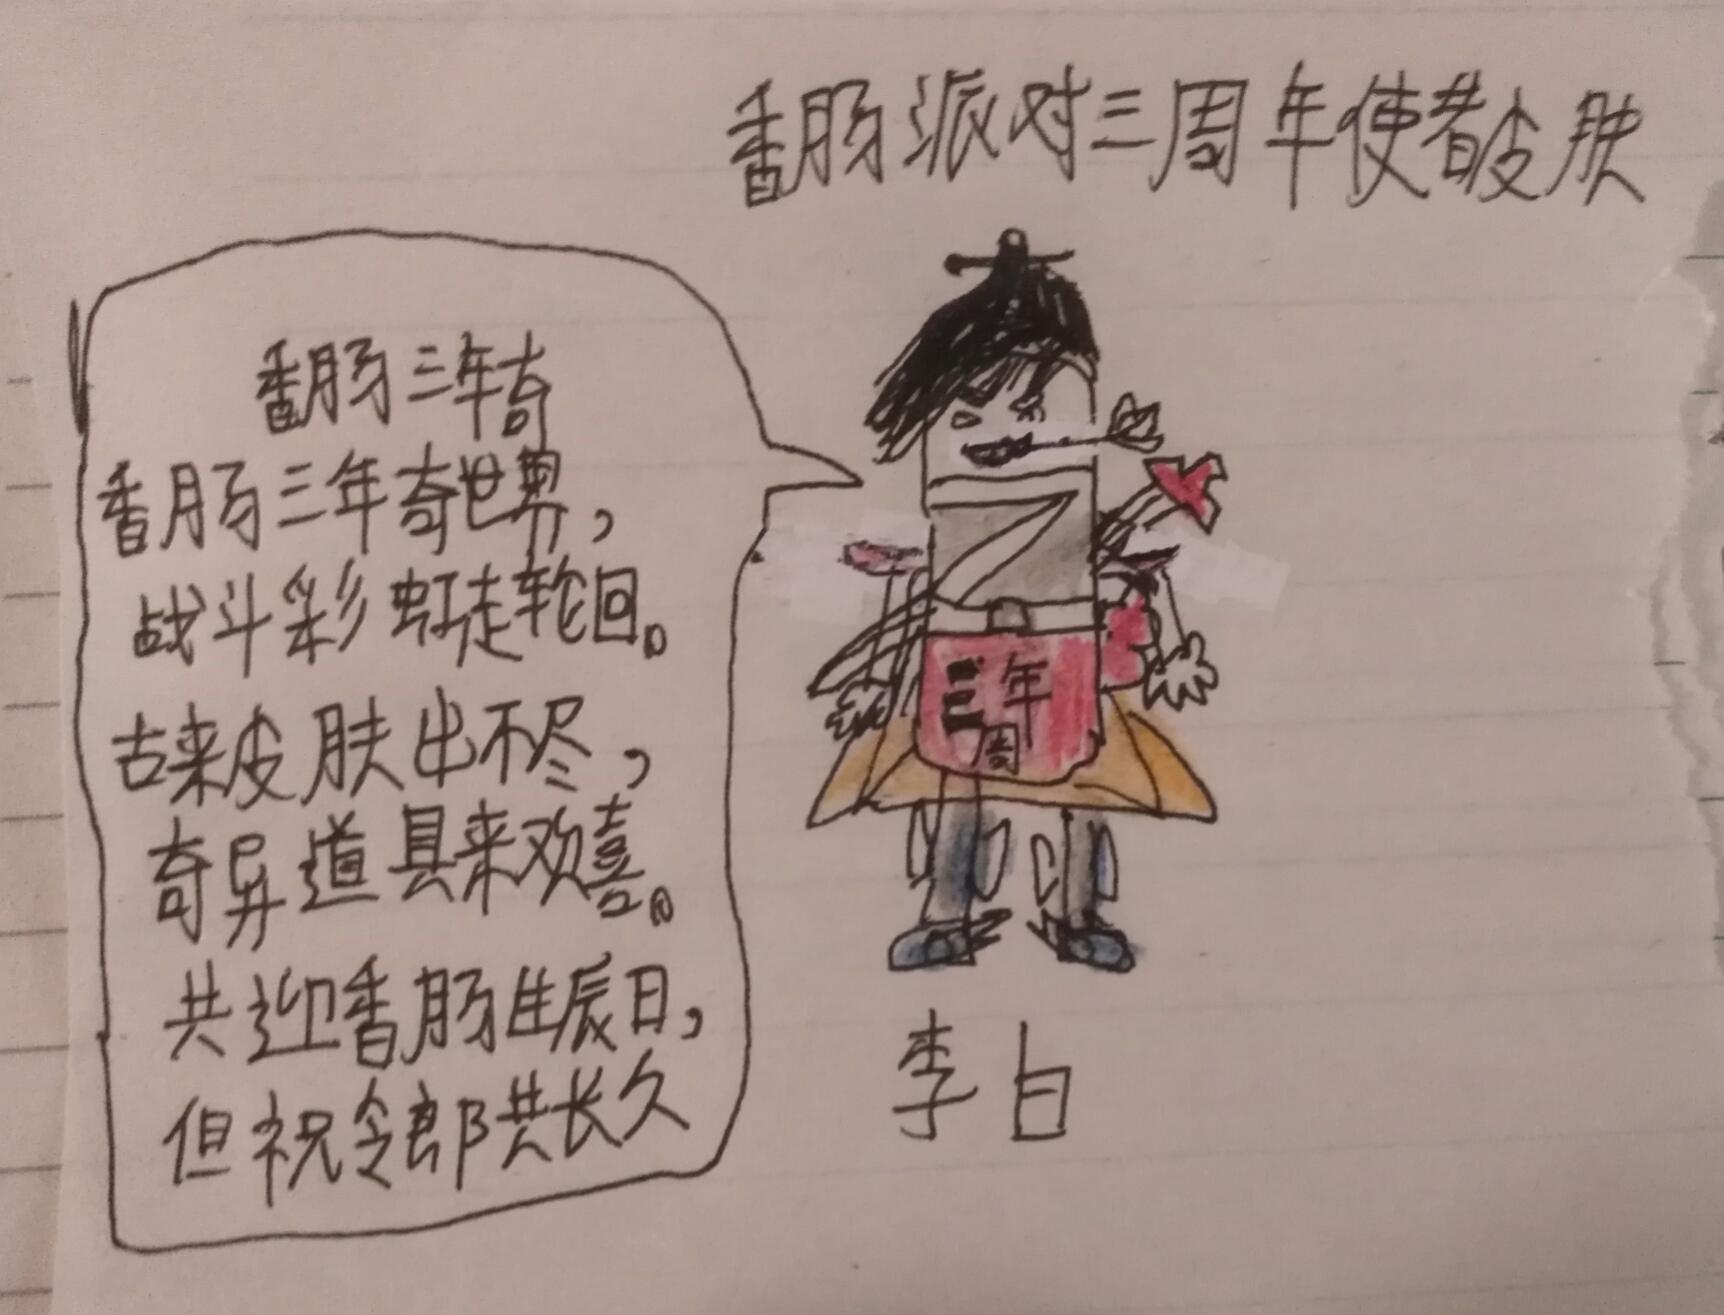 香肠派对三周年使者皮肤
香肠三年奇
香肠三年奇世界，
战斗彩虹走轮回。
古来皮肤出不尽，
奇异道具来欢喜。
共迎香肠生辰日，
但祝令郎共长久
三年
周
李白